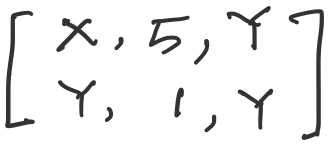 [ X, 5, Y
Y, 1, Y ]